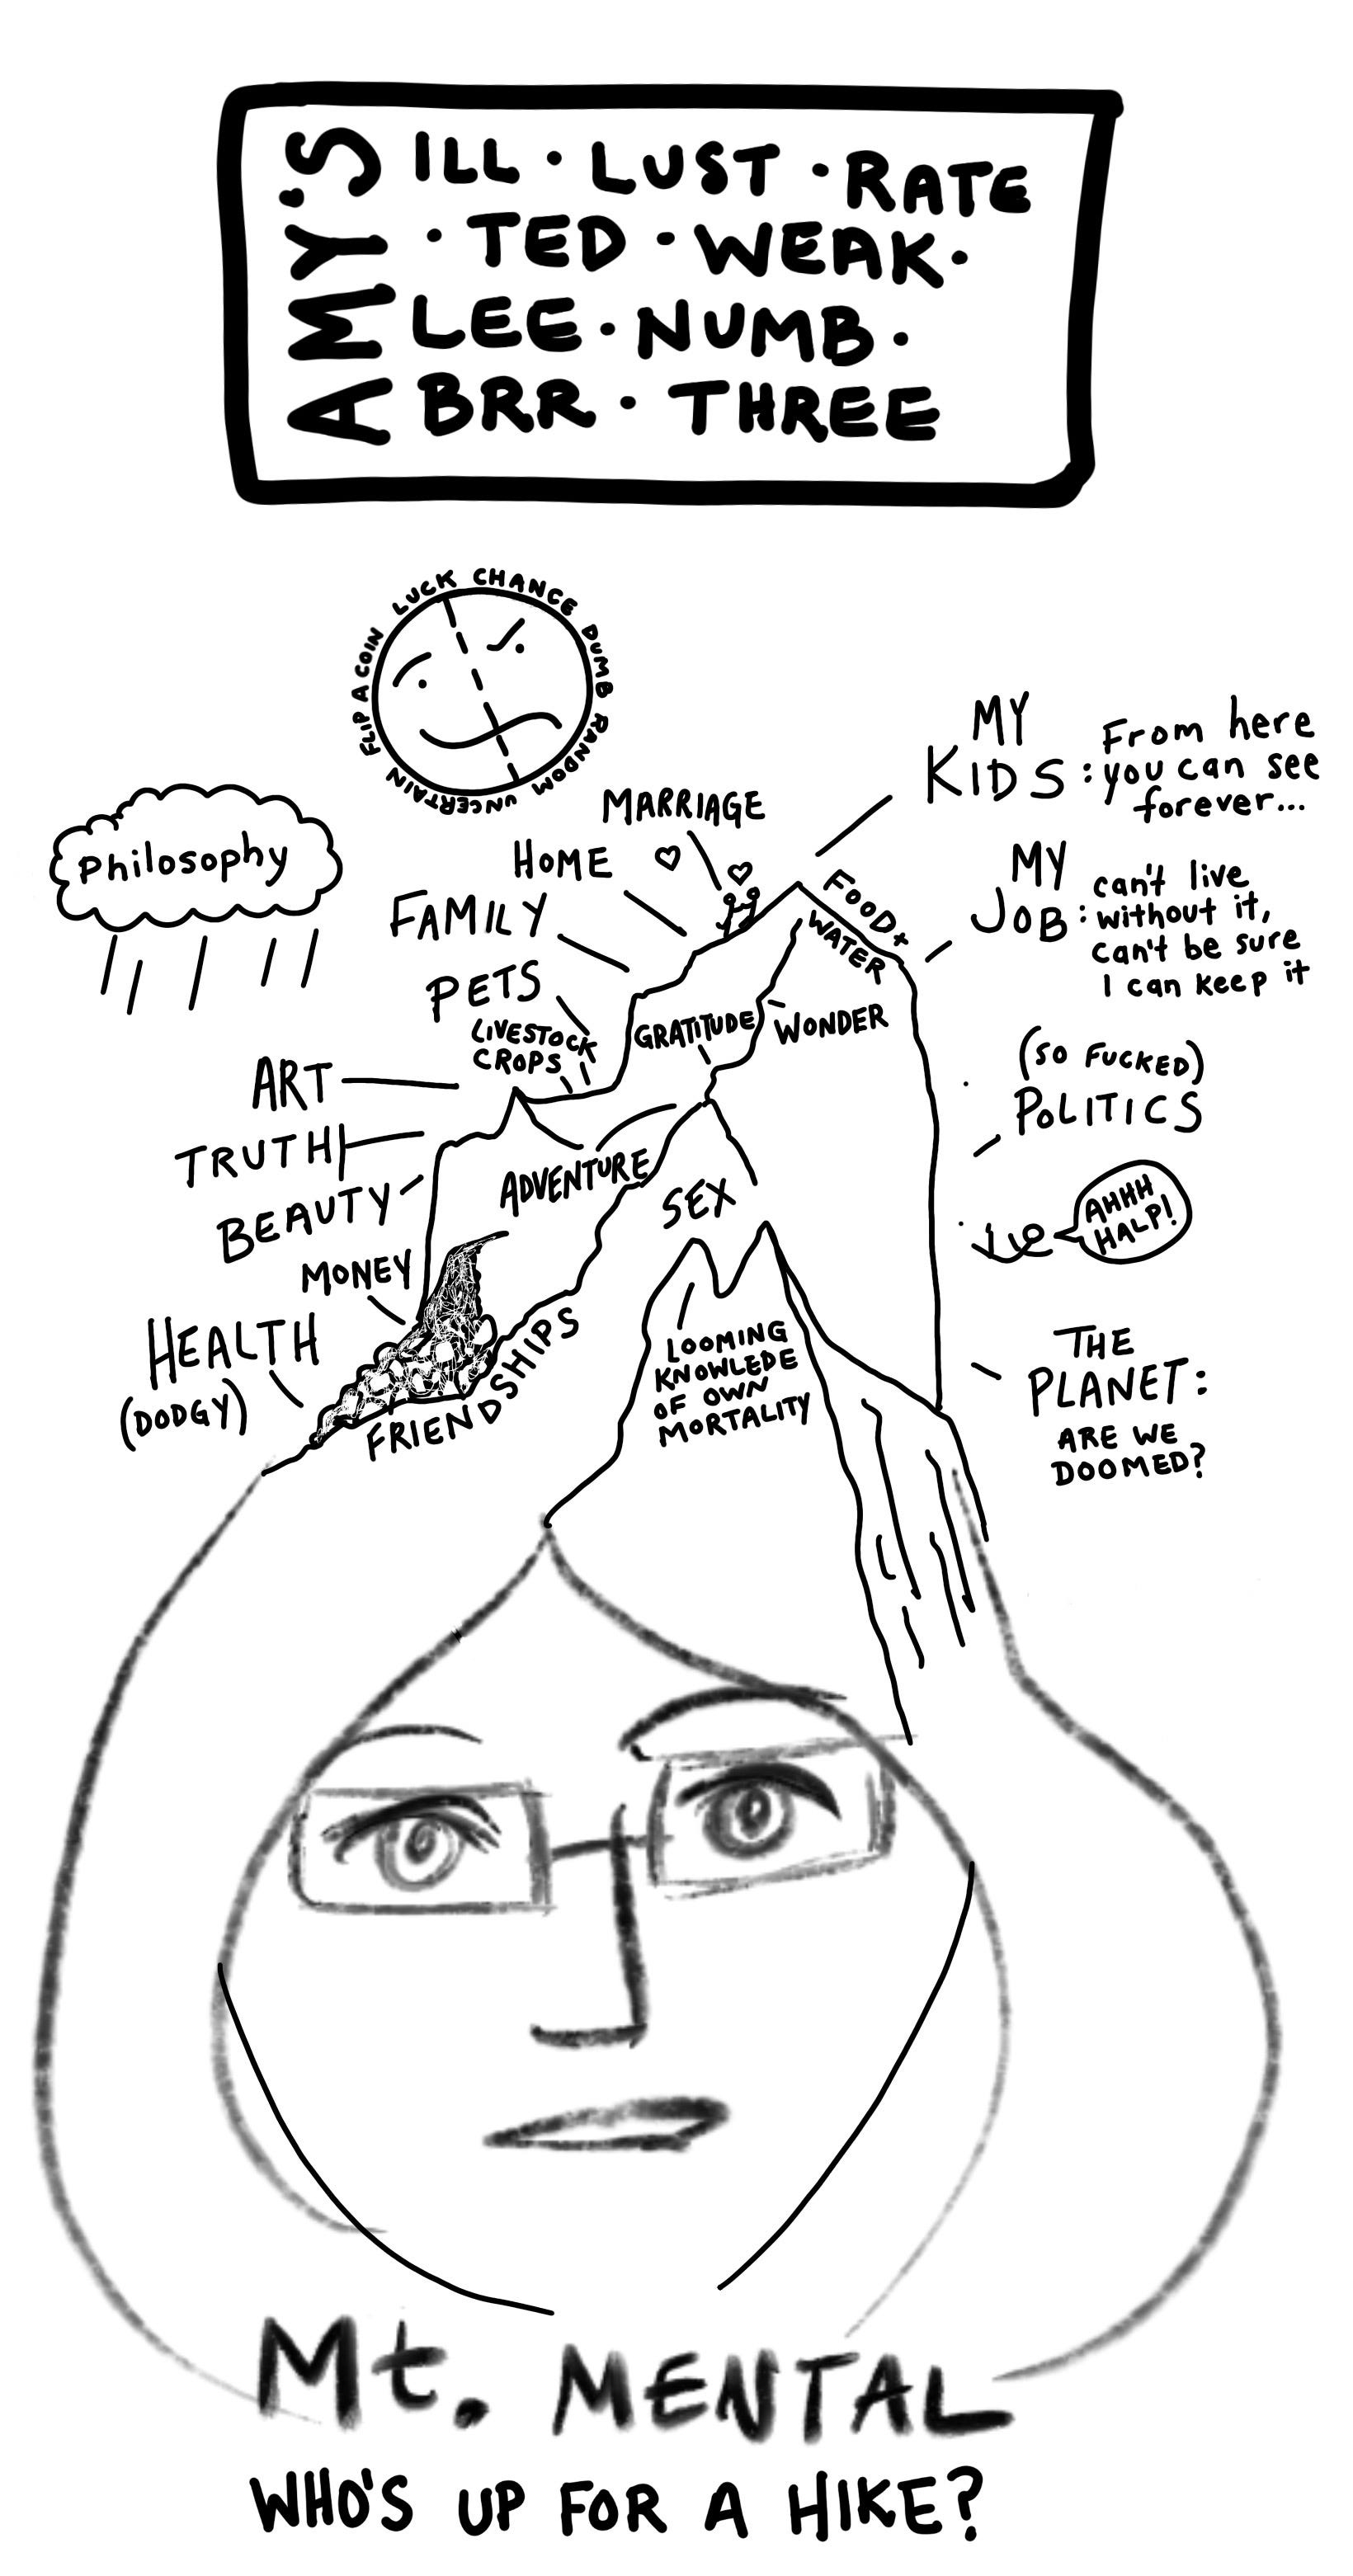 AMY'S
ILL · LUST · RATE
· TED · WEAK ·
LEE · NUMB ·
BRR · THREE
FLIP A COIN LUCK CHANCE DUMB RANDOM UNCERTAIN
Philosophy
MARRIAGE
HOME
FAMILY
PETS
LIVESTOCK
CROPS
ART
TRUTH
BEAUTY
MONEY
HEALTH
(DODGY)
FOOD +
WATER
GRATITUDE
WONDER
ADVENTURE
SEX
FRIENDSHIPS
LOOMING
KNOWLEDE
OF OWN
MORTALITY
MY
KIDS : From here
you can see
forever...
MY
JOB : can't live
without it,
can't be sure
I can keep it
(SO FUCKED)
POLITICS
AHHH
HALP!
THE
PLANET:
ARE WE
DOOMED?
Mt. MENTAL
WHO'S UP FOR A HIKE?